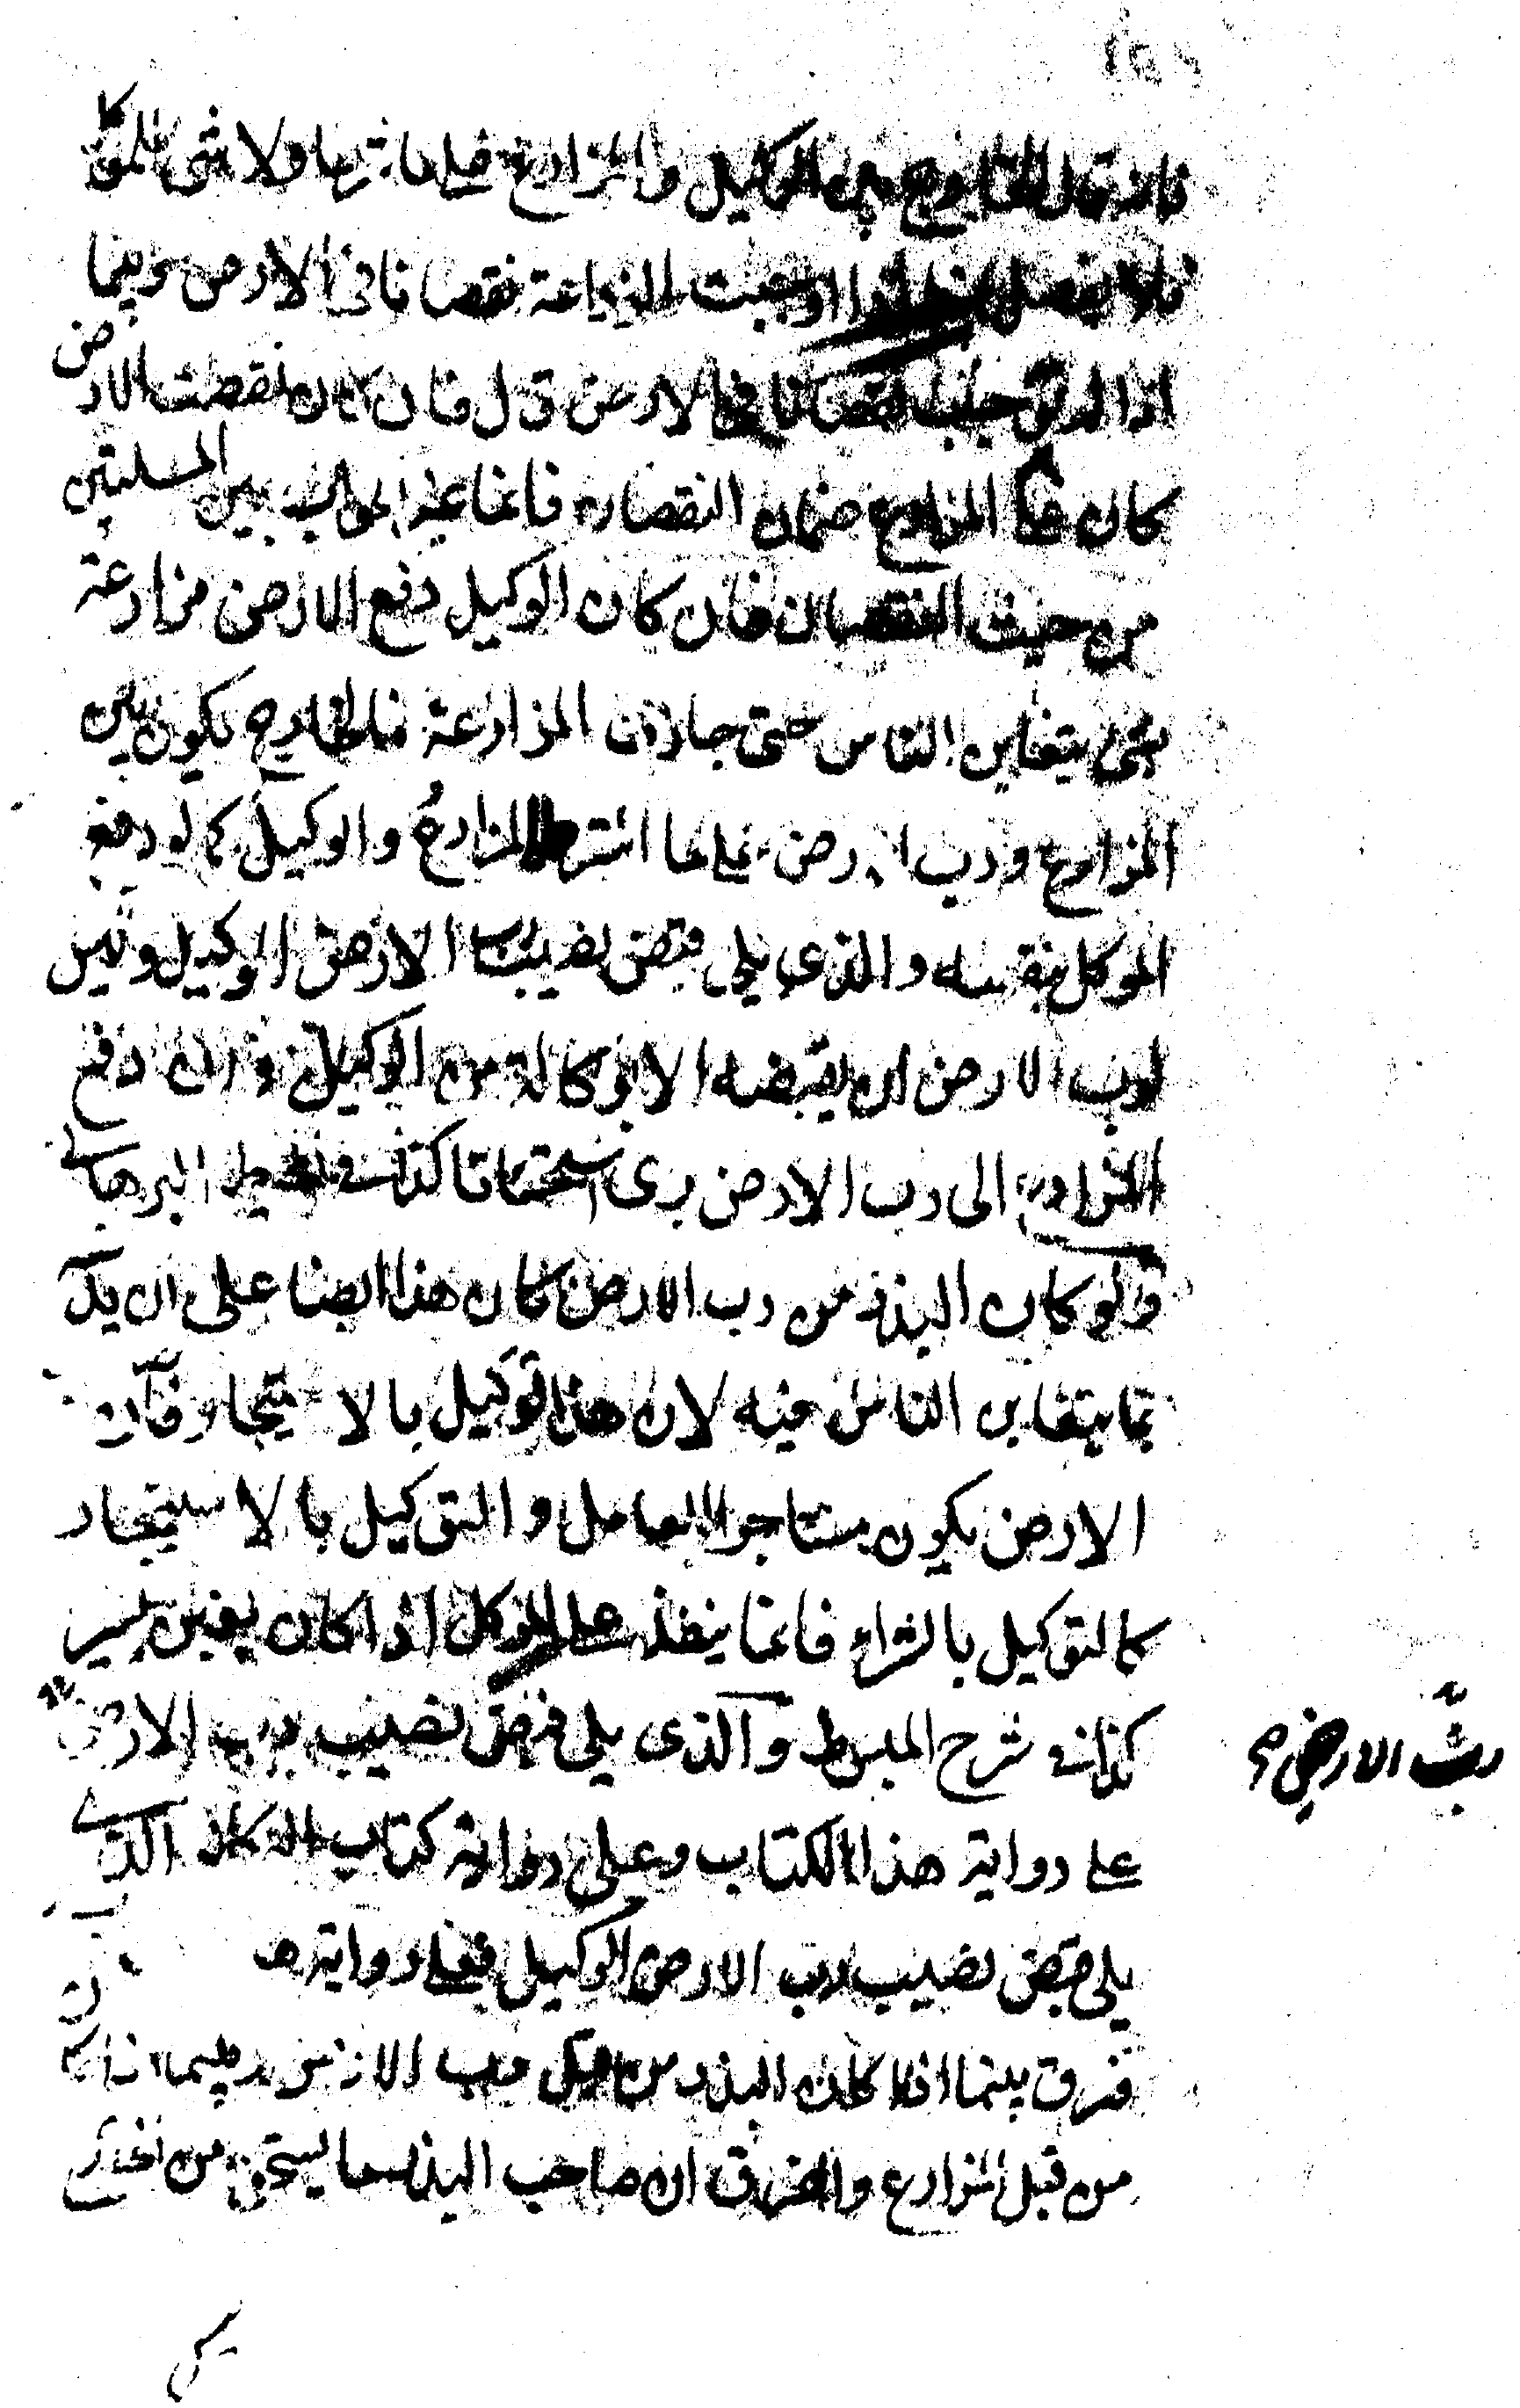 قال الخارج بين الوكيل والمزارع على ما شرطا ولا شئ للموكل
ولا يفصل اوجبت الزراعة نقصانا في الارض وبينما
اذا لم توجب نقصانا في الارض قال فان كان نقصت الارض
كان على المزارع ضمان النقصان فانما غير الجواب بين المسلتين
من حيث النقصان فان كان الوكيل دفع الارض مزارعة
بما يتغابن الناس حتى جازت المزارعة فالخارج يكون بين
المزارع ورب الارض على ما اشترط المزارع والوكيل كما لو دفعه
الموكل بنفسه والذي يلي قبض نصيب رب الارض الوكيل وليس
لرب الارض ان يقبضه الا بوكالة من الوكيل وان دفع
المزارع الى رب الارض برى استحسانا كذا في المحيط البرهاني
ولو كان البذر من رب الارض كان هذا ايضا على ان يد
بما يتغابن الناس فيه لان هذا توكيل بالا ستيجار فان رب
الارض يكون مستاجرا للعامل والتوكيل بالاستيجار
كالتوكيل بالشراء فانما ينفذ على الموكل اذا كان بغبن يسير
كذا في شرح المبسوط والذى يلي قبض نصيب رب الارض
رب الارض
على رواية هذا الكتاب وعلى رواية كتاب الوكالة الذي
يلي قبض نصيب رب الارض الوكيل فعلى رواية
فرق بينما اذا كان البذر من قبل رب الارض وبينما اذا كان
من قبل المزارع والفرق ان صاحب البذر ما يستحق من الخارج